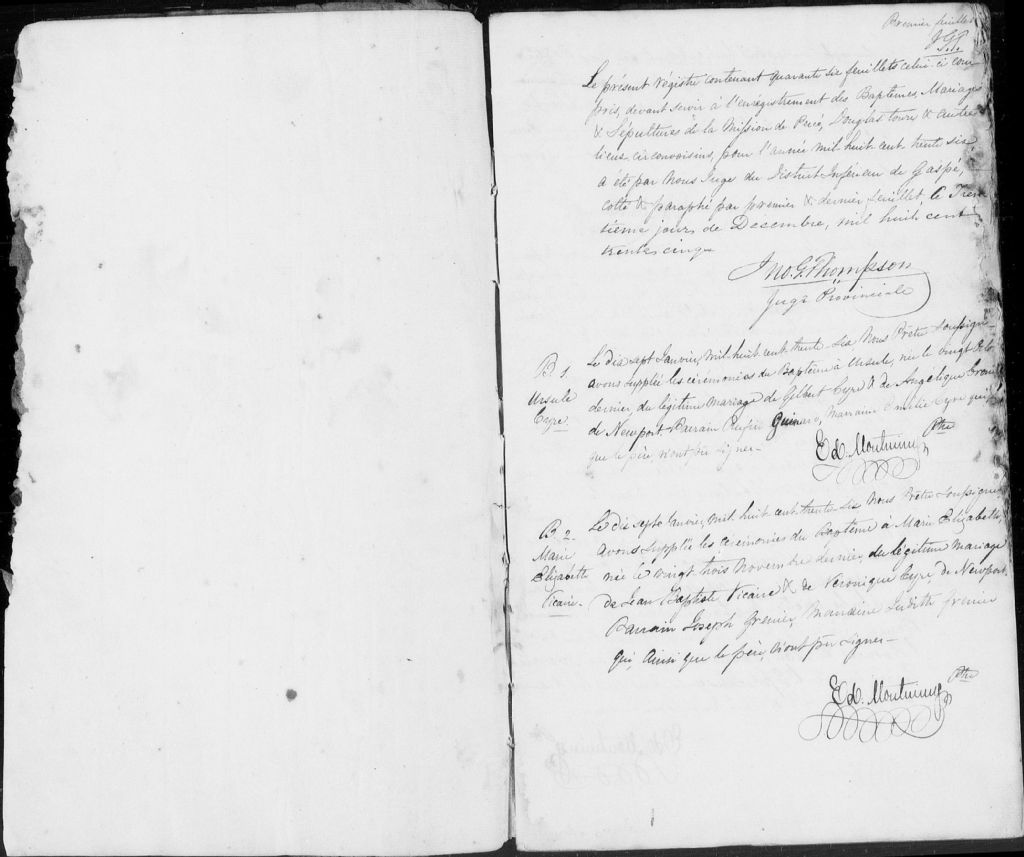 Premier feuillet
J.G.T.
Le présent régistre contenant quarante six feuillets celui-ci com
pris, devant servir à l'enrégistrement des Baptêmes, Mariages
& Sépultures de la Mission de Percé, Douglas town & autres
lieux circonvoisins, pour l'année mil huit cent trente six,
a été par Nous Juge du District Inférieur de Gaspé,
cotté & paraphé par premier & dernier feuillet, le Tren
tieme jour, de Décembre, mil huit cent
trente cinq.
Jno. G. Thompson
Juge Provinciale
B 1. Le dix sept Janvier, mil huit cent trente six Nous Prêtre soussigné
Ursule avons supplée les cérémonies du Baptême à Ursule, née le vingt
Cyre dernier, du légitime mariage de Gilbert Cyre & de Angelique
de Newport Parrain Marraine Emelie Cyre qui
que le père, n'ont pu signer_
Ed. Montminy Ptre
B. 2. Le dix sept Janvier, mil huit cent trente six Nous Prêtre soussigné
Marie avons supplée les ceremonies du Baptême à Marie Elizabette,
Elizabette née le vingt trois Novembre dernier, du légitime mariage
Vicaire. de Jean Baptiste Vicaire & de Veronique Cyre, de Newport.
Parrain Joseph Grenier, Marraine Judith Grenier
qui, ainsi que le père, n'ont pu signer_
Ed. Montminy Ptre